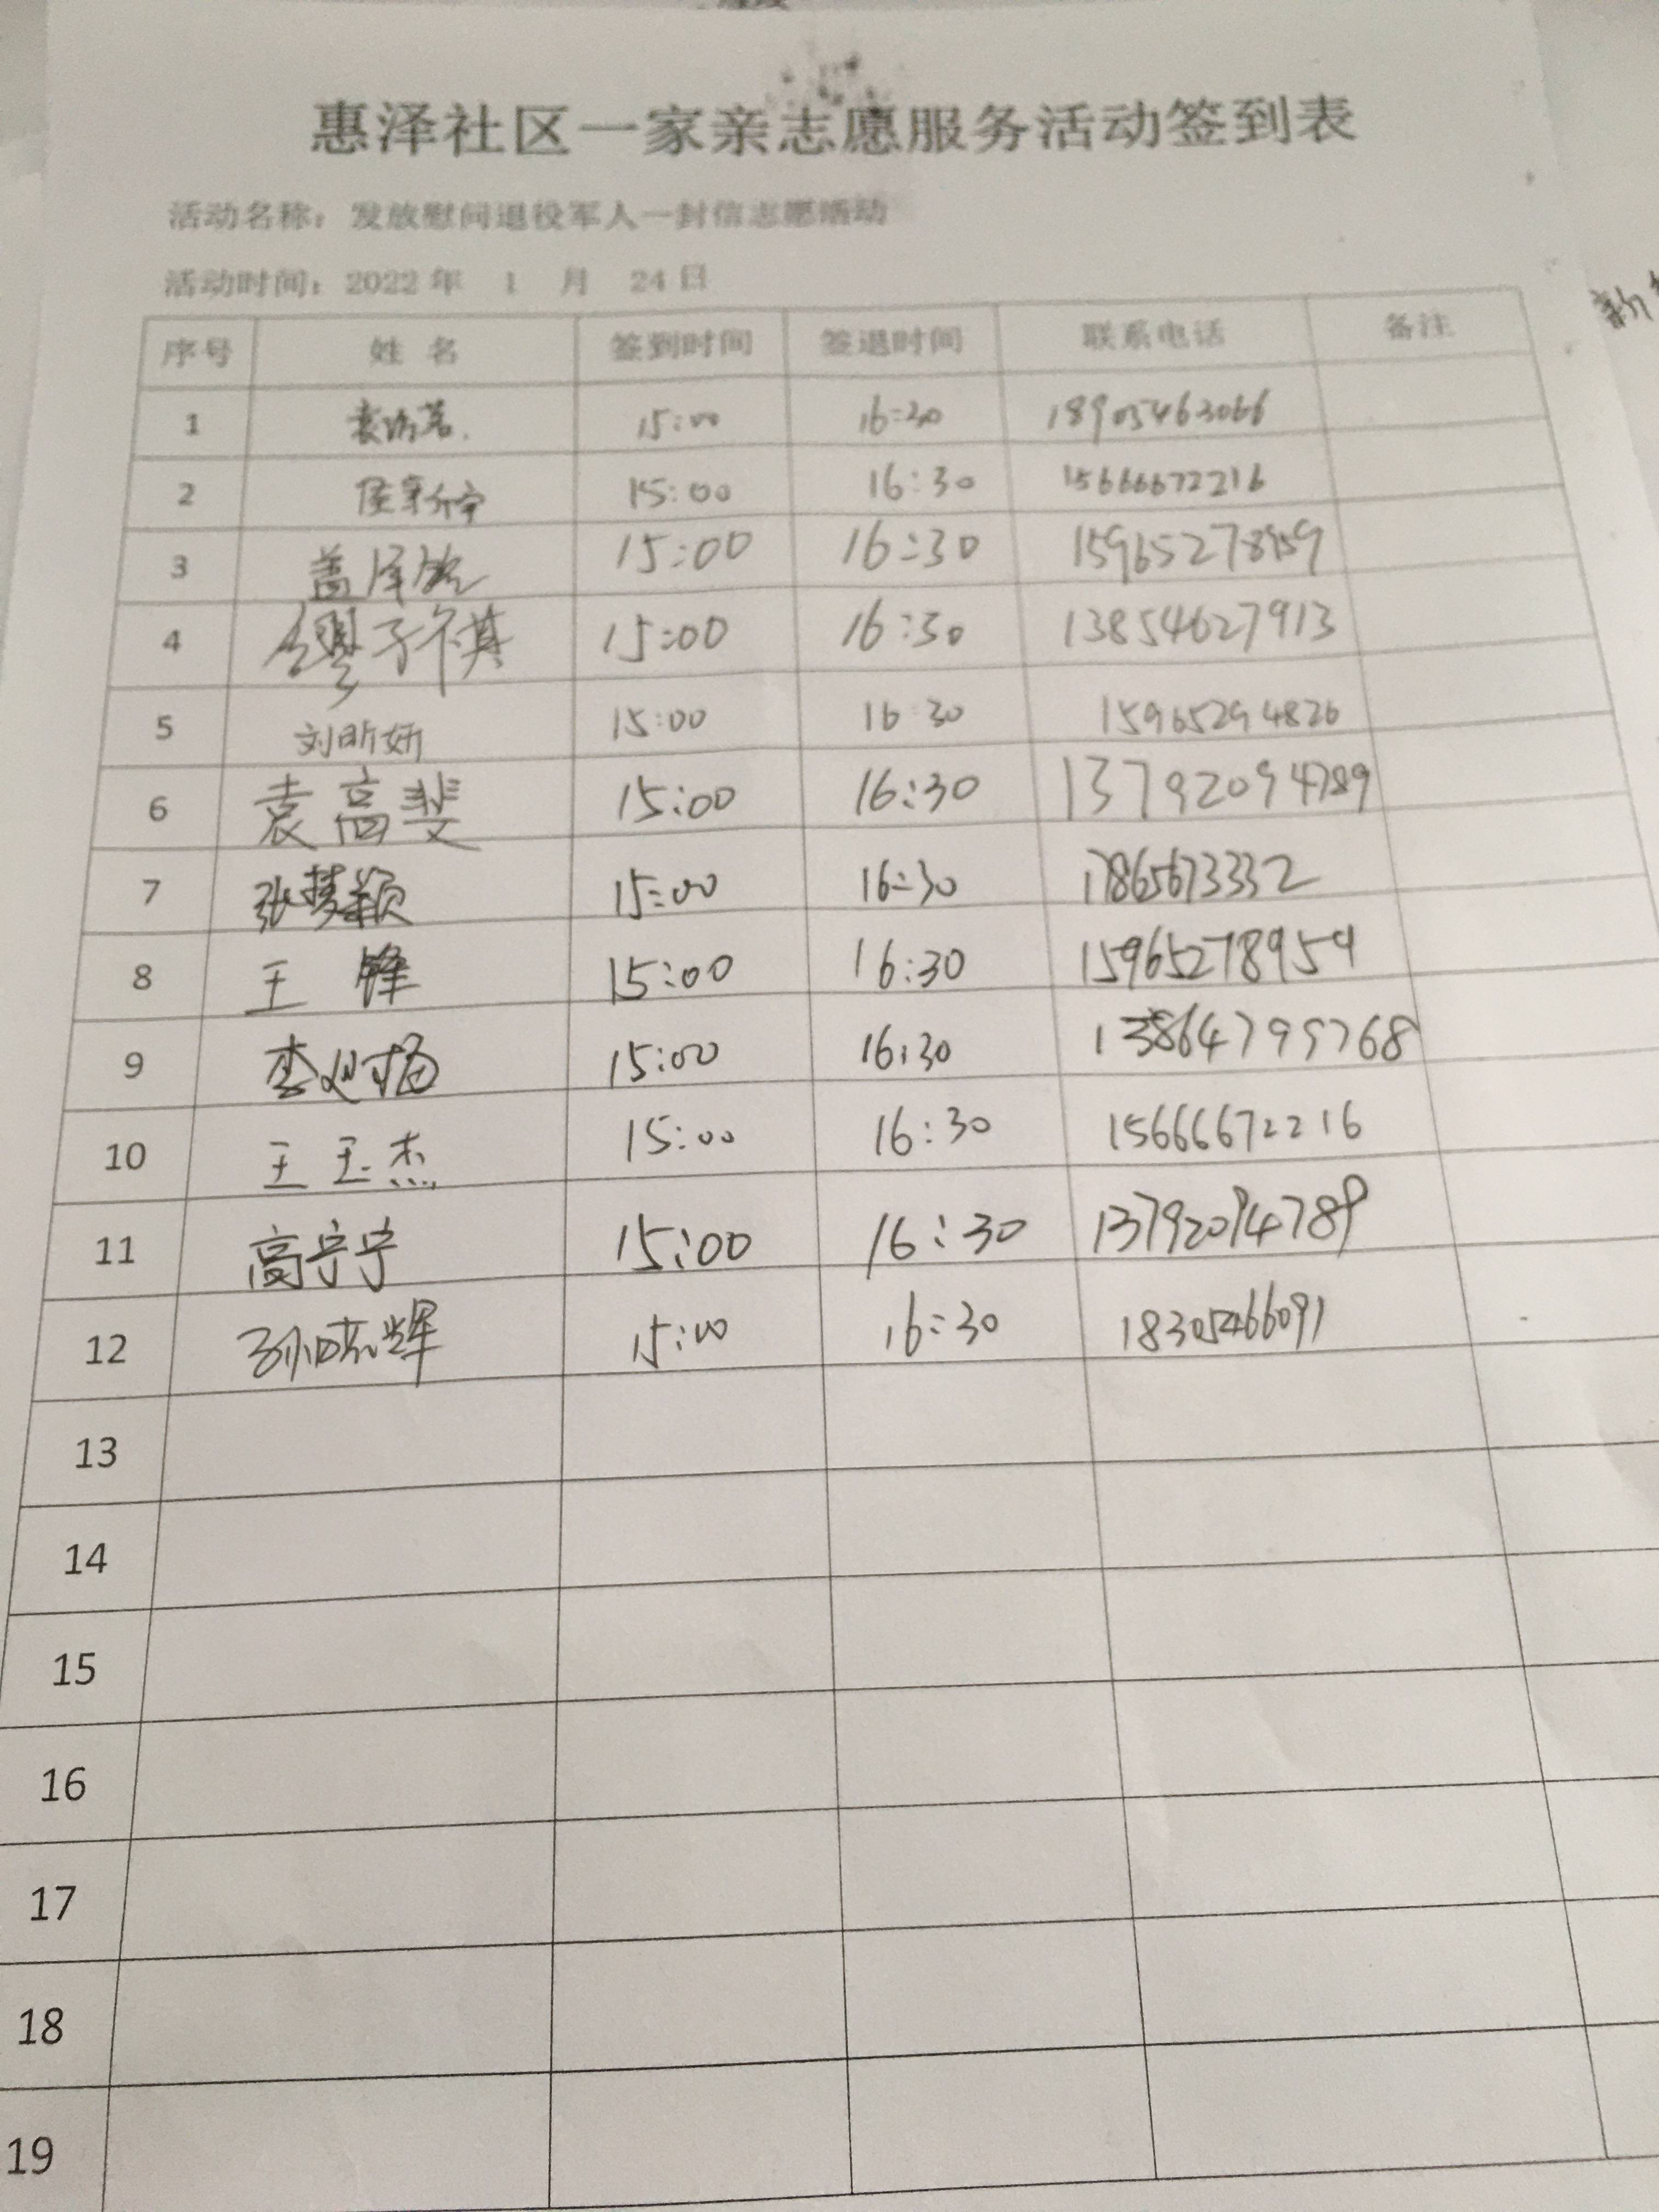 惠泽社区一家亲志愿服务活动签到表
活动名称：发放慰问退役军人一封信志愿活动
活动时间：2022 年 1 月 24 日
序号 姓 名 签到时间 签退时间 联系电话 备注
1 15:00 16:30 18905463066
2 15:00 16:30 15666672216
3 盖泽铭 15:00 16:30 15965278959
4 缪子祺 15:00 16:30 13854627913
5 刘昕妍 15:00 16:30 15965294826
6 袁高斐 15:00 16:30 13792094789
7 张梦颖 15:00 16:30 17865673332
8 王 锋 15:00 16:30 15965278959
9 15:00 16:30 13864795768
10 王玉杰 15:00 16:30 15666672216
11 高宁宁 15:00 16:30 13792094789
12 孙晓辉 15:00 16:30 18305466091
13
14
15
16
17
18
19